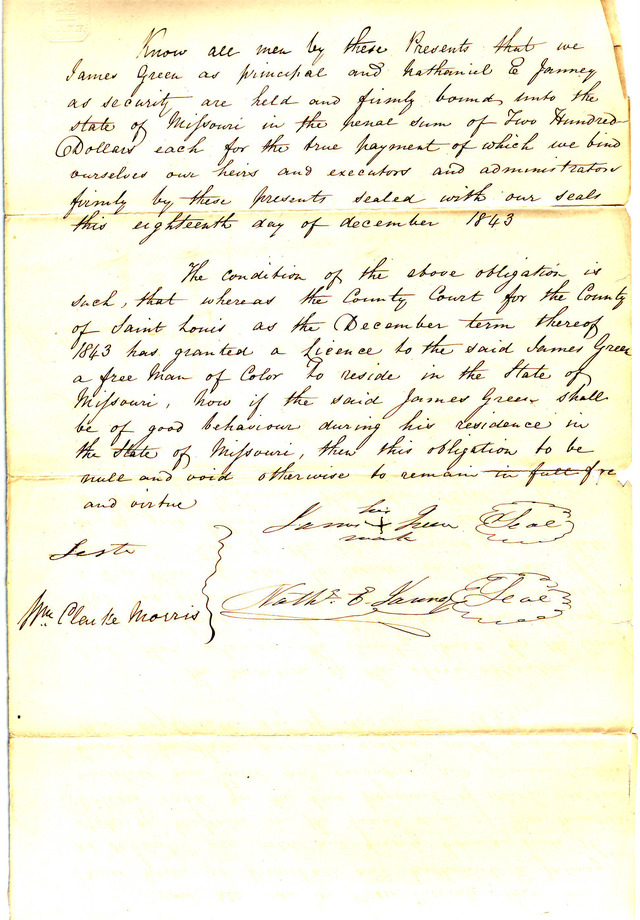 Know all men by these Presents that we
James Green as principal and Nathaniel E Janney
as security are held and firmly bound unto the
state of Missouri in the penal sum of Two Hundred
Dollars each for the true payment of which we bind
ourselves our heirs and executors and administrators
firmly by these presents sealed with our seals
this eighteenth day of december 1843
The condition of the above obligation is
such, that whereas the County Court for the County
of Saint Louis as the December term thereof
1843 has granted a Licence to the said James Green
a free Man of Color to reside in the State of
Missouri, Now if the said James Green shall
be of good behaviour during his residence in
the State of Missouri, then this obligation to be
null and void otherwise to remain in full force
and virtue
his
James + Green Seal
mark
Teste
Nathl. E. Janney Seal
Wm Clarke Morris